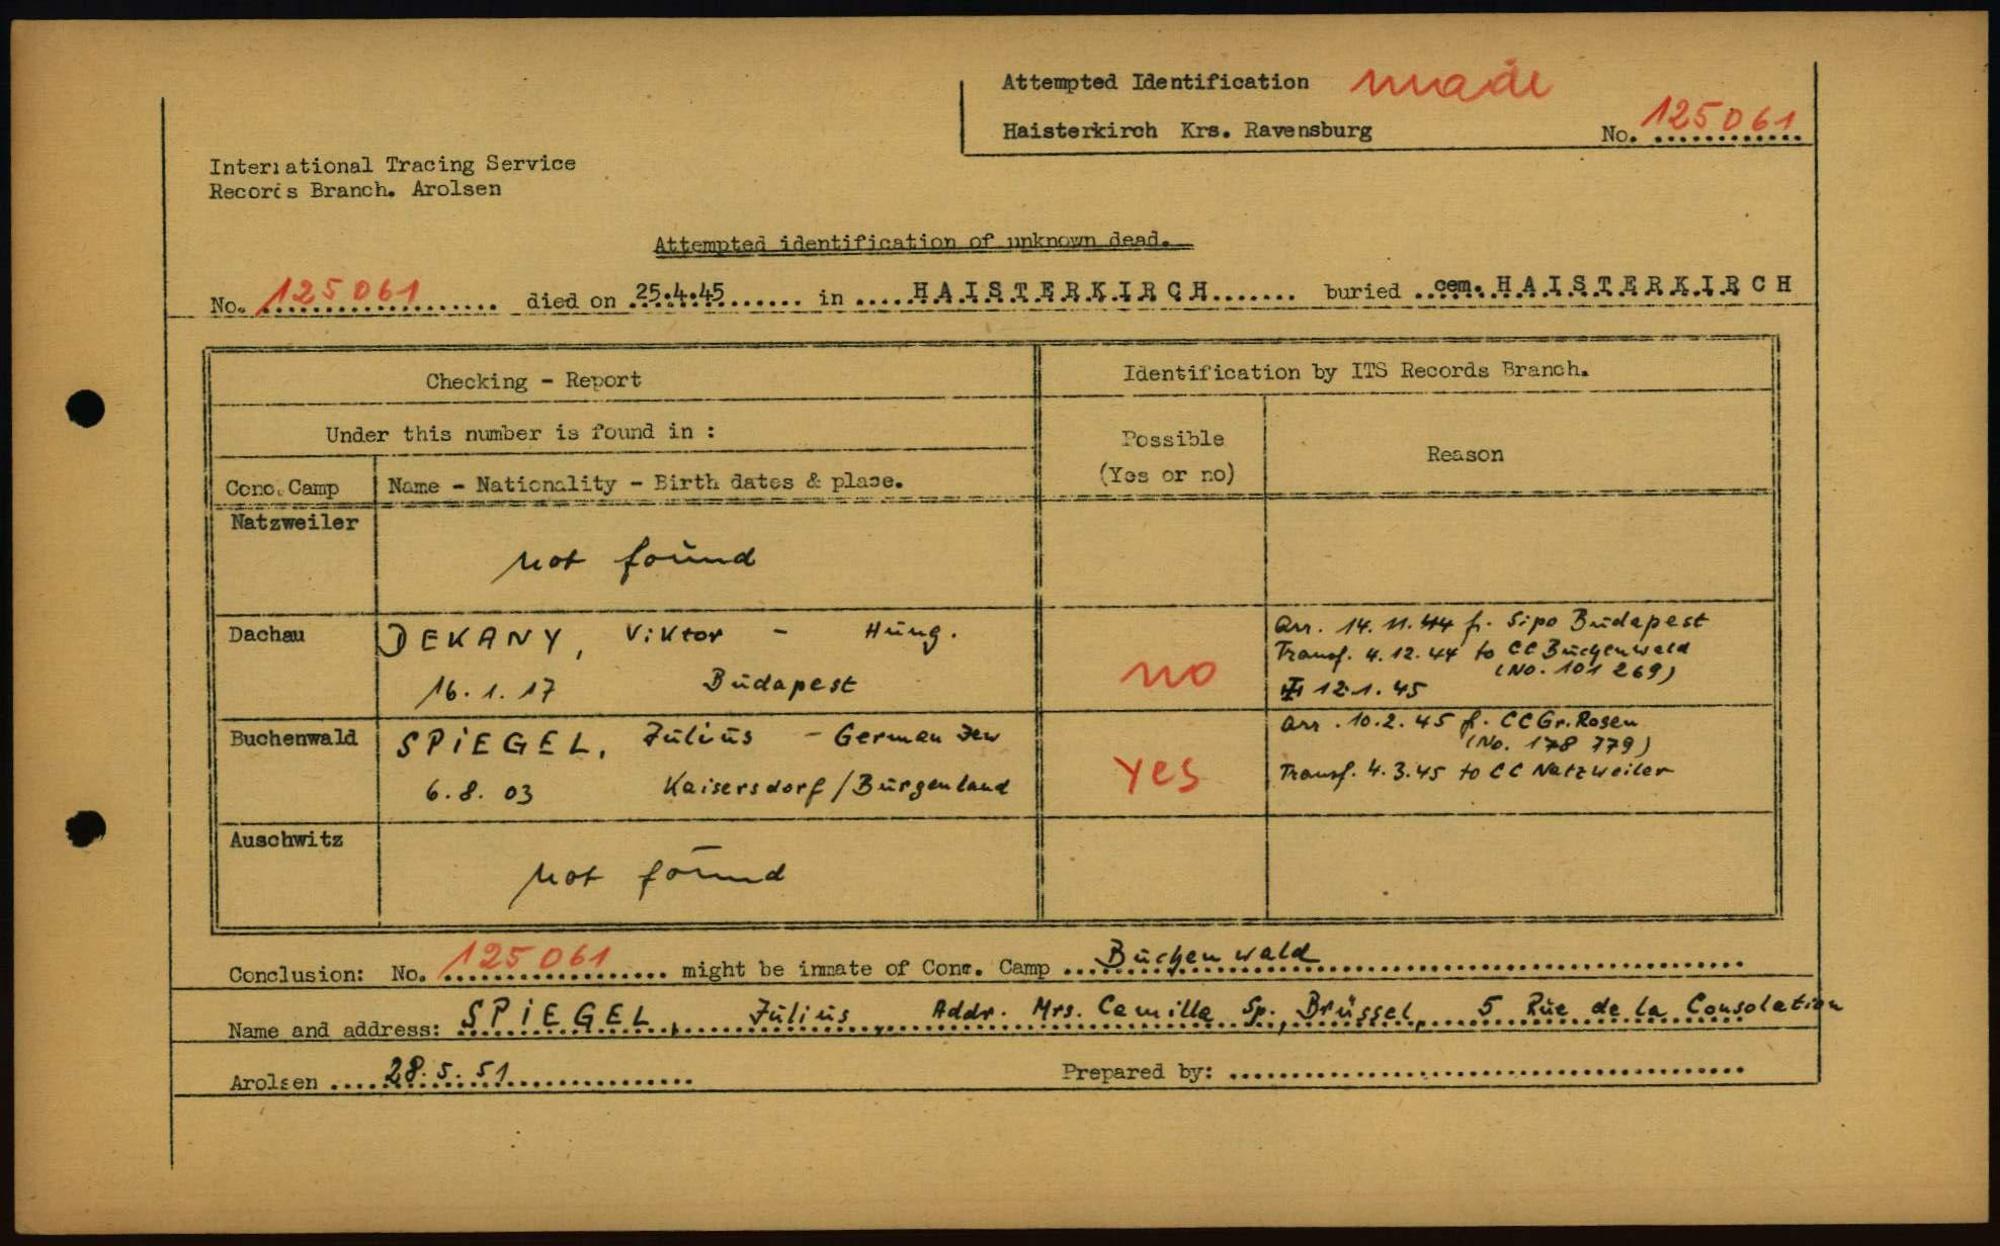 Attempted Identification made
Haisterkirch Krs. Ravensburg No. 125061
International Tracing Service
Records Branch. Arolsen
Attempted identification of unknown dead.
No. 125061 died on 25.4.45 in HAISTERKIRCH buried cem. HAISTERKIRCH
Checking - Report
Identification by ITS Records Branch.
Under this number is found in :
Possible
(Yes or no)
Reason
Conc. Camp
Name - Nationality - Birth dates & place.
Natzweiler
not found
Dachau
DEKANY, Viktor - Hung.
16.1.17 Budapest
no
Arr. 14.11.44 f. Sipo Budapest
Transf. 4.12.44 to CC Buchenwald
(No. 101 269)
12.1.45
Buchenwald
SPIEGEL, Julius - German Jew
6.8.03 Kaisersdorf/Burgenland
yes
arr. 10.2.45 f. CC Gr. Rosen
(No. 178 779)
Transf. 4.3.45 to CC Natzweiler
Auschwitz
not found
Conclusion: No. 125061 might be inmate of Conc. Camp Buchenwald
Name and address: SPIEGEL, Julius, Addr. Mrs. Camilla Sp., Brüssel, 5 Rue de la Consolation
Arolsen 28.5.51 Prepared by: